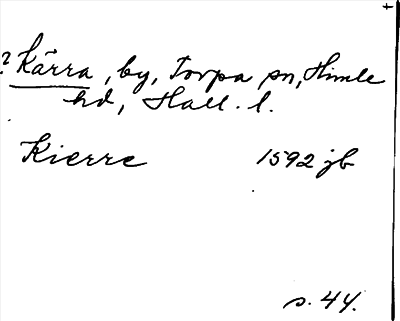 ? Kärra, by, Torpa sn, Himle
hd, Hall. l.
Kierre 1592 jb
s. 44.